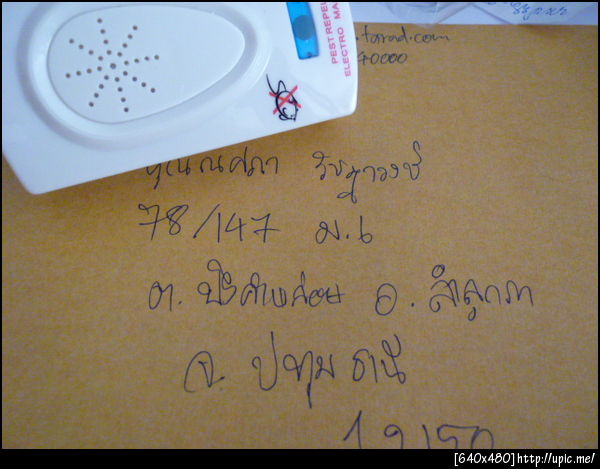 PEST REPEL
ELECTRO MA
.tarad.com
70000
78/147 ม.6
ต. บึงคำพร้อย อ. ลำลูกกา
จ. ปทุมธานี
12150
[640x480]http://upic.me/